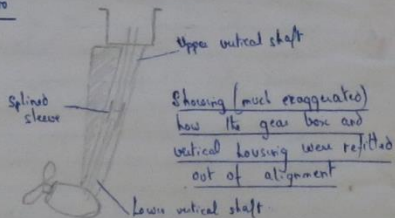 Upper vertical shaft
Splined
sleeve
Showing (much exaggerated)
how the gear box and
vertical housing were refitted
out of alignment
Lower vertical shaft